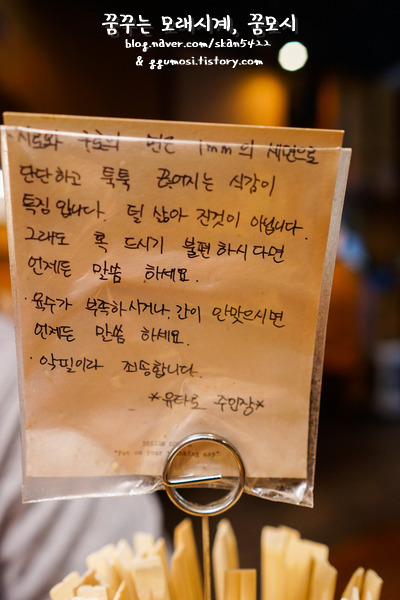 꿈꾸는 모래시계, 꿈모시
blog.naver.com/skan5422
& ggumosi.tistory.com
1mm의 세면으로
단단하고 툭툭 끊어지는 식감이
특징입니다. 덜 삶아 진것이 아닙니다.
그래도 혹 드시기 불편하시다면
언제든 말씀 하세요.
· 육수가 부족하시거나, 간이 안맞으시면
언제든 말씀 하세요.
· 악필이라 죄송합니다.
*유타로 주인장*
"Put on your